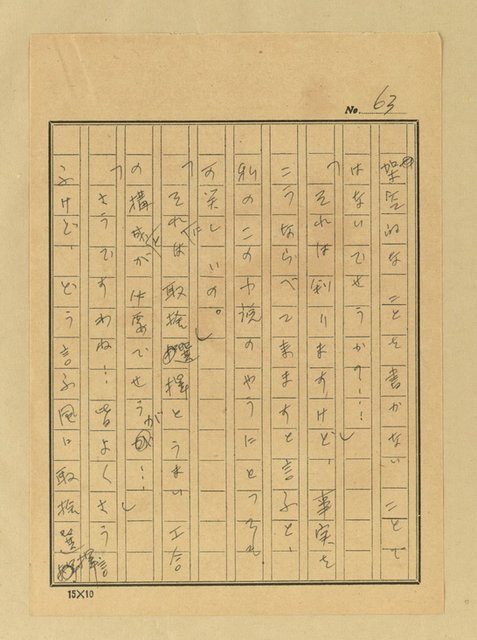 No. 63
架空的なことを書かないことで
はないでせうか？…」
「それは判りますけど、事実を
こうならべて来ますと言ふと、
私のこの小説のやうにとつても
可笑しいの。」
「それは、取捨選擇とうまい工合
の構成が必要でせうが…」
「さうですわね！皆よくさう言
ふけど、どう言ふ風に取捨選擇
15×10